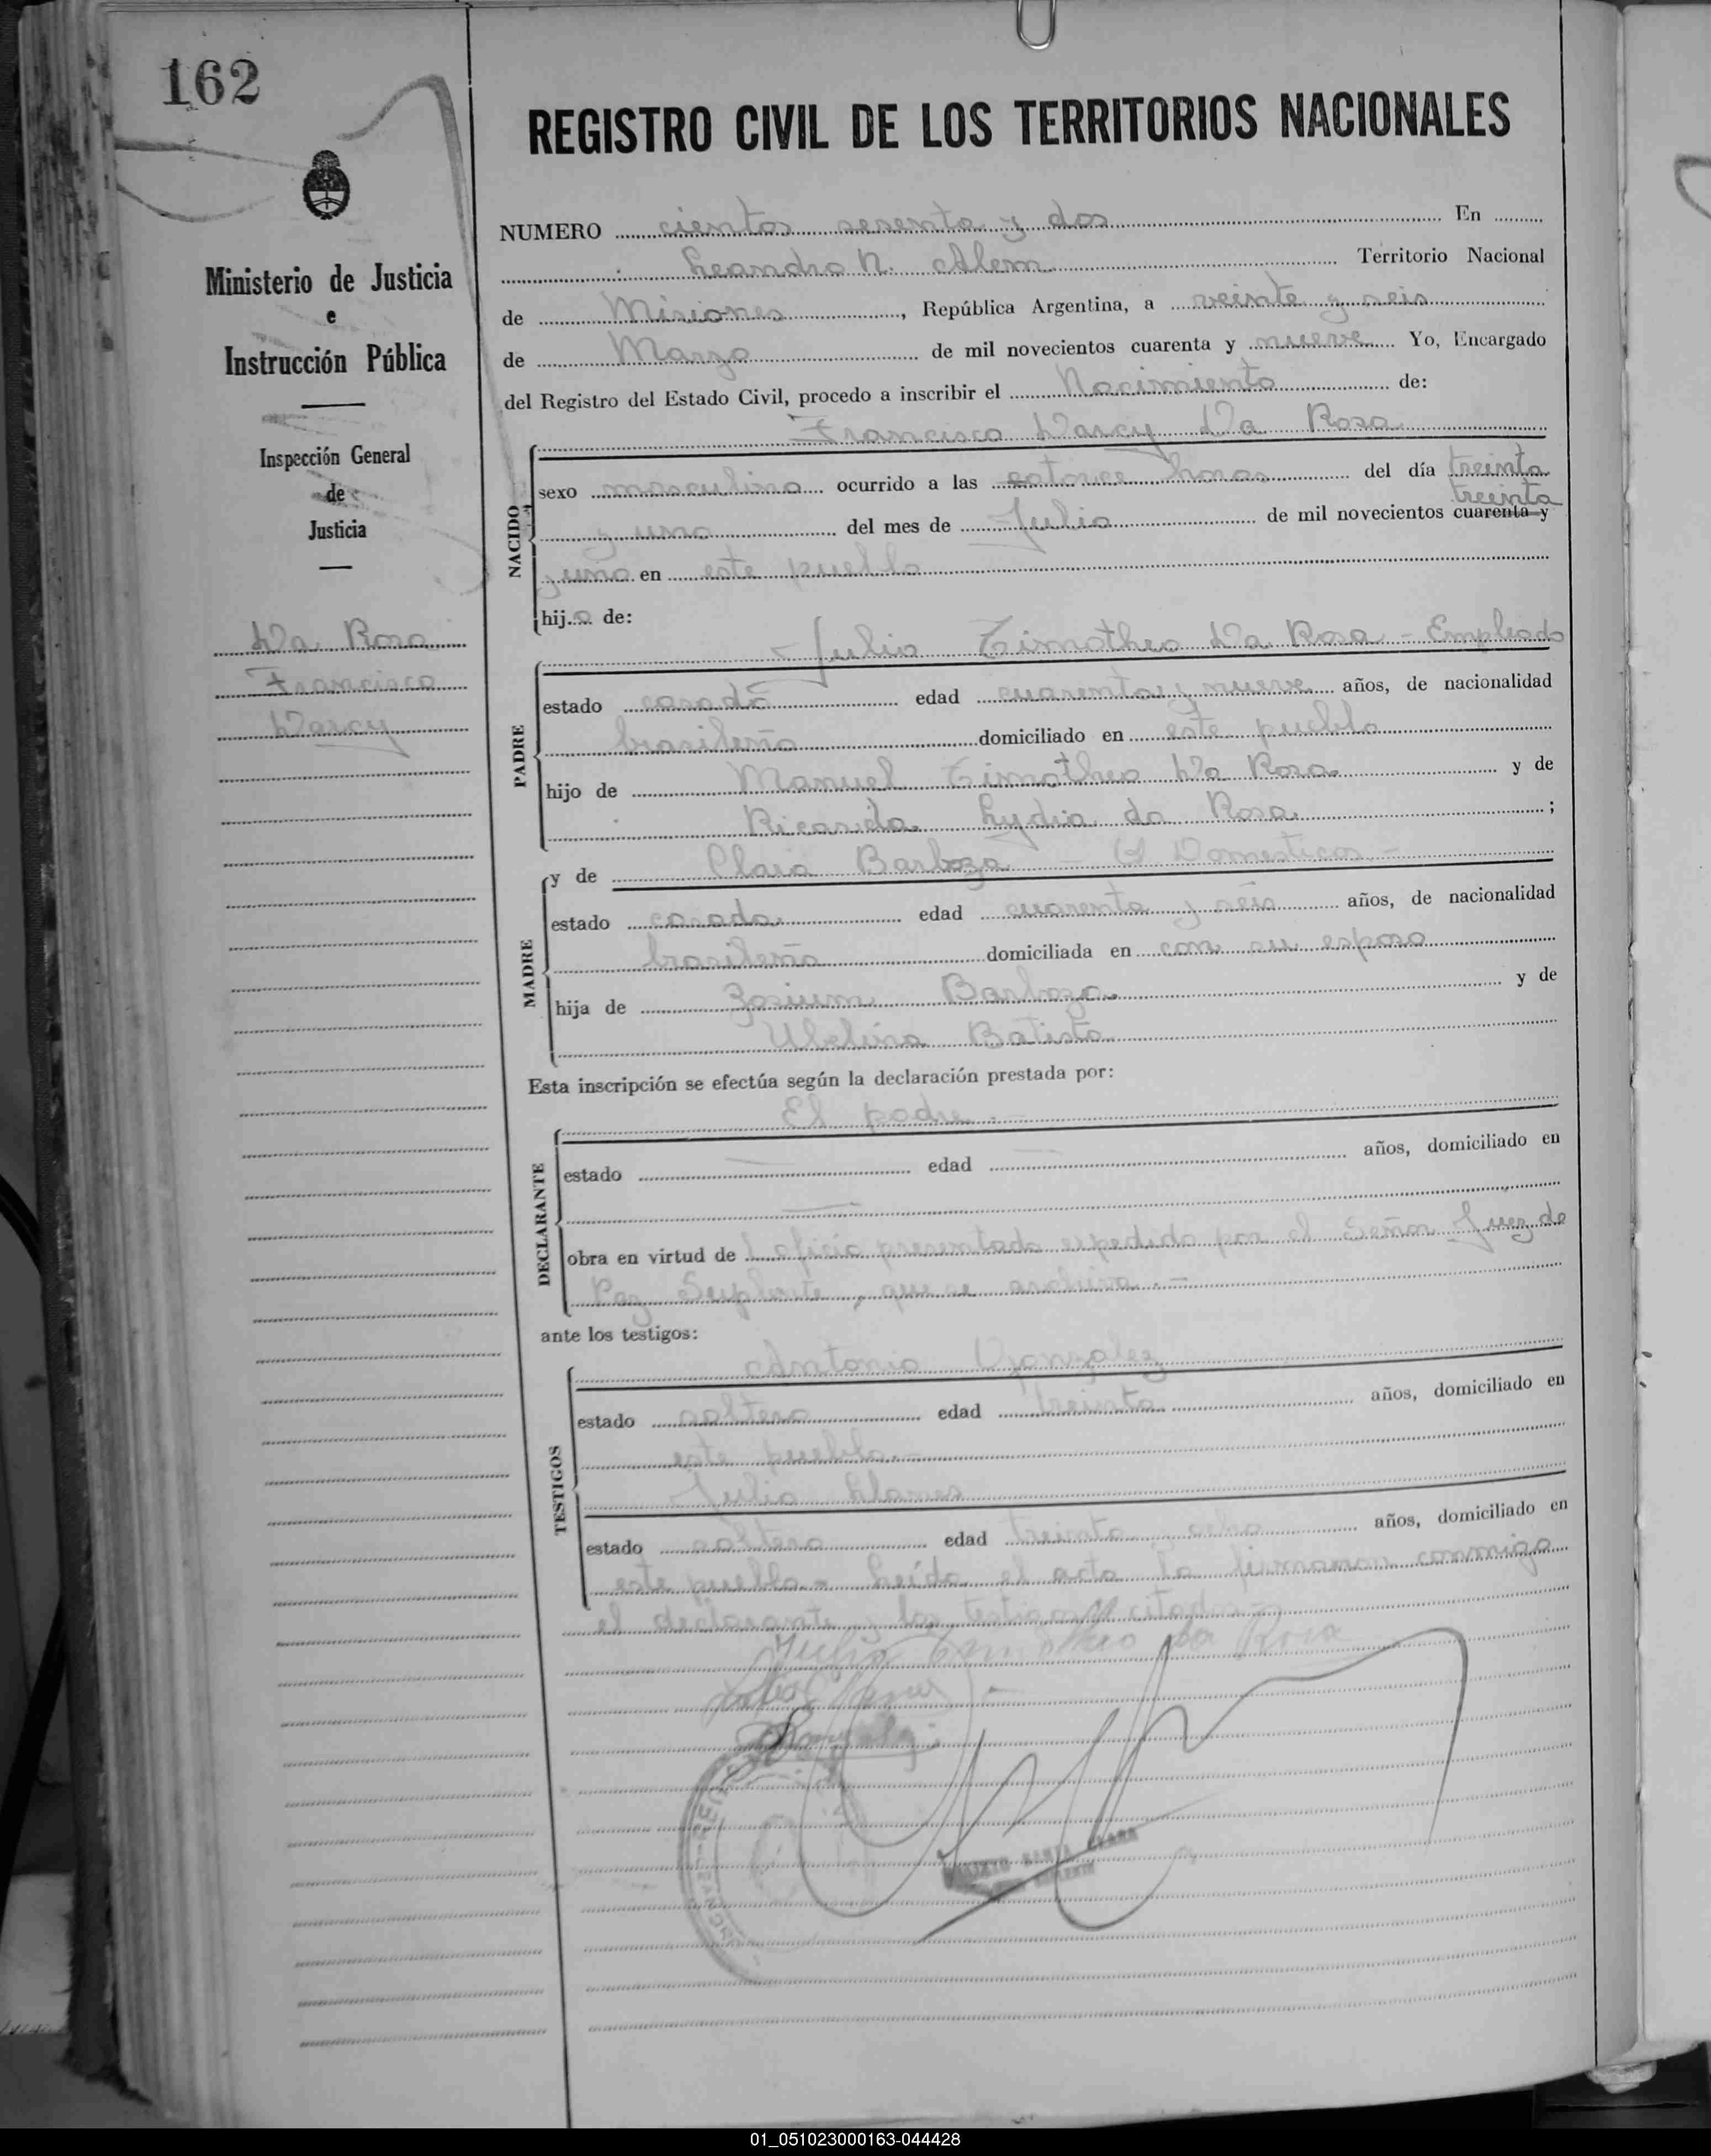 162
REGISTRO CIVIL DE LOS TERRITORIOS NACIONALES
Ministerio de Justicia
e
Instrucción Pública
Inspección General
de
Justicia
Da Rosa
Francisco
Darcy
NUMERO cientos sesenta y dos En
Leandro N. Alem Territorio Nacional
de Misiones, República Argentina, a veinte y seis
de Marzo de mil novecientos cuarenta y nueve Yo, Encargado
del Registro del Estado Civil, procedo a inscribir el Nacimiento de:
Francisco Darcy Da Rosa
NACIDO
sexo masculino ocurrido a las catorce horas del día treinta
treinta
y uno del mes de Julio de mil novecientos cuarenta y
y uno en este pueblo
hijo de:
Julio Timotheo Da Rosa - Empleado
PADRE
estado casado edad cuarenta y nueve años, de nacionalidad
brasileño domiciliado en este pueblo
hijo de Manuel Timotheo Da Rosa y de
Ricarda Lydia da Rosa ;
y de Clara Barboza - Q. Domesticos -
MADRE
estado casada edad cuarenta y seis años, de nacionalidad
brasileña domiciliada en con su esposo
hija de Barboza y de
Ubelina Batista
Esta inscripción se efectúa según la declaración prestada por:
El padre .-
DECLARANTE
estado — edad — años, domiciliado en
—
obra en virtud de oficio presentado expedido por el Señor Juez de
Paz Suplente, que se archiva .-
ante los testigos:
Antonio Gonzalez
TESTIGOS
estado soltero edad treinta años, domiciliado en
este pueblo.-
Julio Llanes
estado soltero edad treinta y ocho años, domiciliado en
este pueblo.- Leída el acta la firmaron conmigo
el declarante y los testigos citados.-
Julio Timotheo da Rosa
SANTA CLARA
01_051023000163-044428